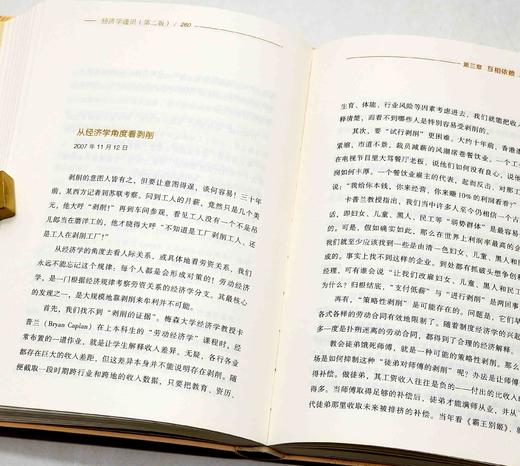 经济学通识（第二版）/ 260
从经济学角度看剥削
2007 年 11 月 12 日
剥削的意图人皆有之，但要让意图得逞，谈何容易！三十年
前，某西方记者到苏联考察，问到工人的月薪，竟然只是几个美
元，他大呼“剥削！”再到车间参观，看见工人没有一个不是吊
儿郎当在磨洋工的，他才晓得大呼“不知道是工厂剥削工人，还
是工人在剥削工厂！”
从经济学的角度去看人际关系，或具体地看劳资关系，我们
永远不能忘记这个规律：每个人都是会形成对策的！劳动经济
学，是一门根据经济规律考察劳资关系的经济学分支。其最核心
的发现之一，是大规模地靠剥削来牟利并不可能。
首先，我们找不到“剥削的证据”。梅森大学经济学教授卡
普兰（Bryan Caplan）在上本科生的“劳动经济学”课程时，经
常布置的一道作业，就是让学生解释收入差异。无疑，各行各业
都存在巨大的收入差距，但这差异本身并不能说明存在剥削。随
便截取一段时期跨行业和跨地的收入数据，只要把教育、资历、
第三章 互相依赖
生育、体能、行业风险等因素考虑进去，我们就能把收入
释清楚，而看不到哪些人是特别容易受剥削的。
其次，要“试行剥削”更困难。大约十年前，香港
紧缩，市道不景，裁员减薪的风潮席卷餐饮业。一个工
在电视节目里大骂餐厅老板，说他们如何没有良心，说他
阔如何丰厚。一个餐饮业雇主的代表，起而反击，对那工
说：“我给你本钱，你来经营，你来赚 10% 的利润看看？”
卡普兰教授指出，我们当中许多人至今仍相信一个古
话，即妇女、儿童、黑人、民工等“弱势群体”是最容易
的。假如情况确实如此，那么在世界上利润率最高的企业
我们就至少应该找到一些是由清一色妇女、儿童、黑人和
成的。事实上找不到这样的企业。到处都有抓破头想争创
经理，可有谁会说“让我们改雇妇女、儿童、黑人和民工
为什么？归根结底，“支付低薪”与“进行剥削”是两回事
再有，“策略性剥削”是可能存在的。问题是，它们早
各式各样的劳动合同有效地限制了。随着制度经济学的兴起
多一度是扑朔迷离的劳动合同，都得到了合理的经济解释。
教会徒弟饿死师傅，就是一种可能的策略性剥削。那么
场是如何抑制这种“徒弟对师傅的剥削”呢？办法是让师傅
得补偿。做徒弟，其工资收入往往是负的——付出的比收入
得多。当师傅取得足够的补偿后，徒弟才能满师从业，并从
代徒弟那里收取未来被排挤的补偿。当年看《霸王别姬》，